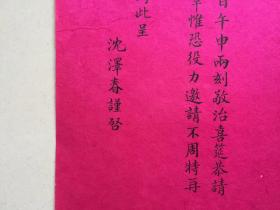 百午申兩刻敬治喜筵恭請
惟恐役力邀請不周特再
此呈
沈澤春謹啓